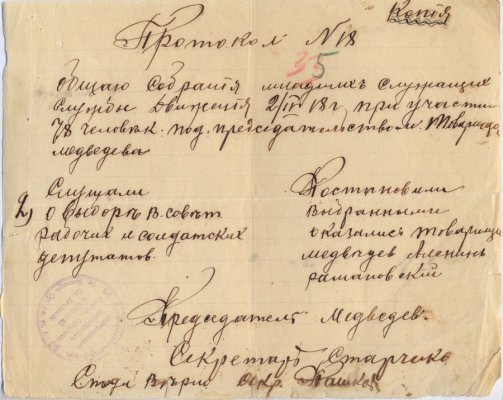 Копія
Протокол № 18
35
общаго собранія младших служащих
службы движенія 2/IV 18 г, при участи
78 человек. под. председательством Товарища
медведева
Слушали
2) о выборе в. совет
рабочих и солдатских
депутатов.
Постановили
выбранными
оказались товарищи
медведев Аленин
рамановский
Председатель Медведев.
Секретарь Старчико
С подл. верно Секр.